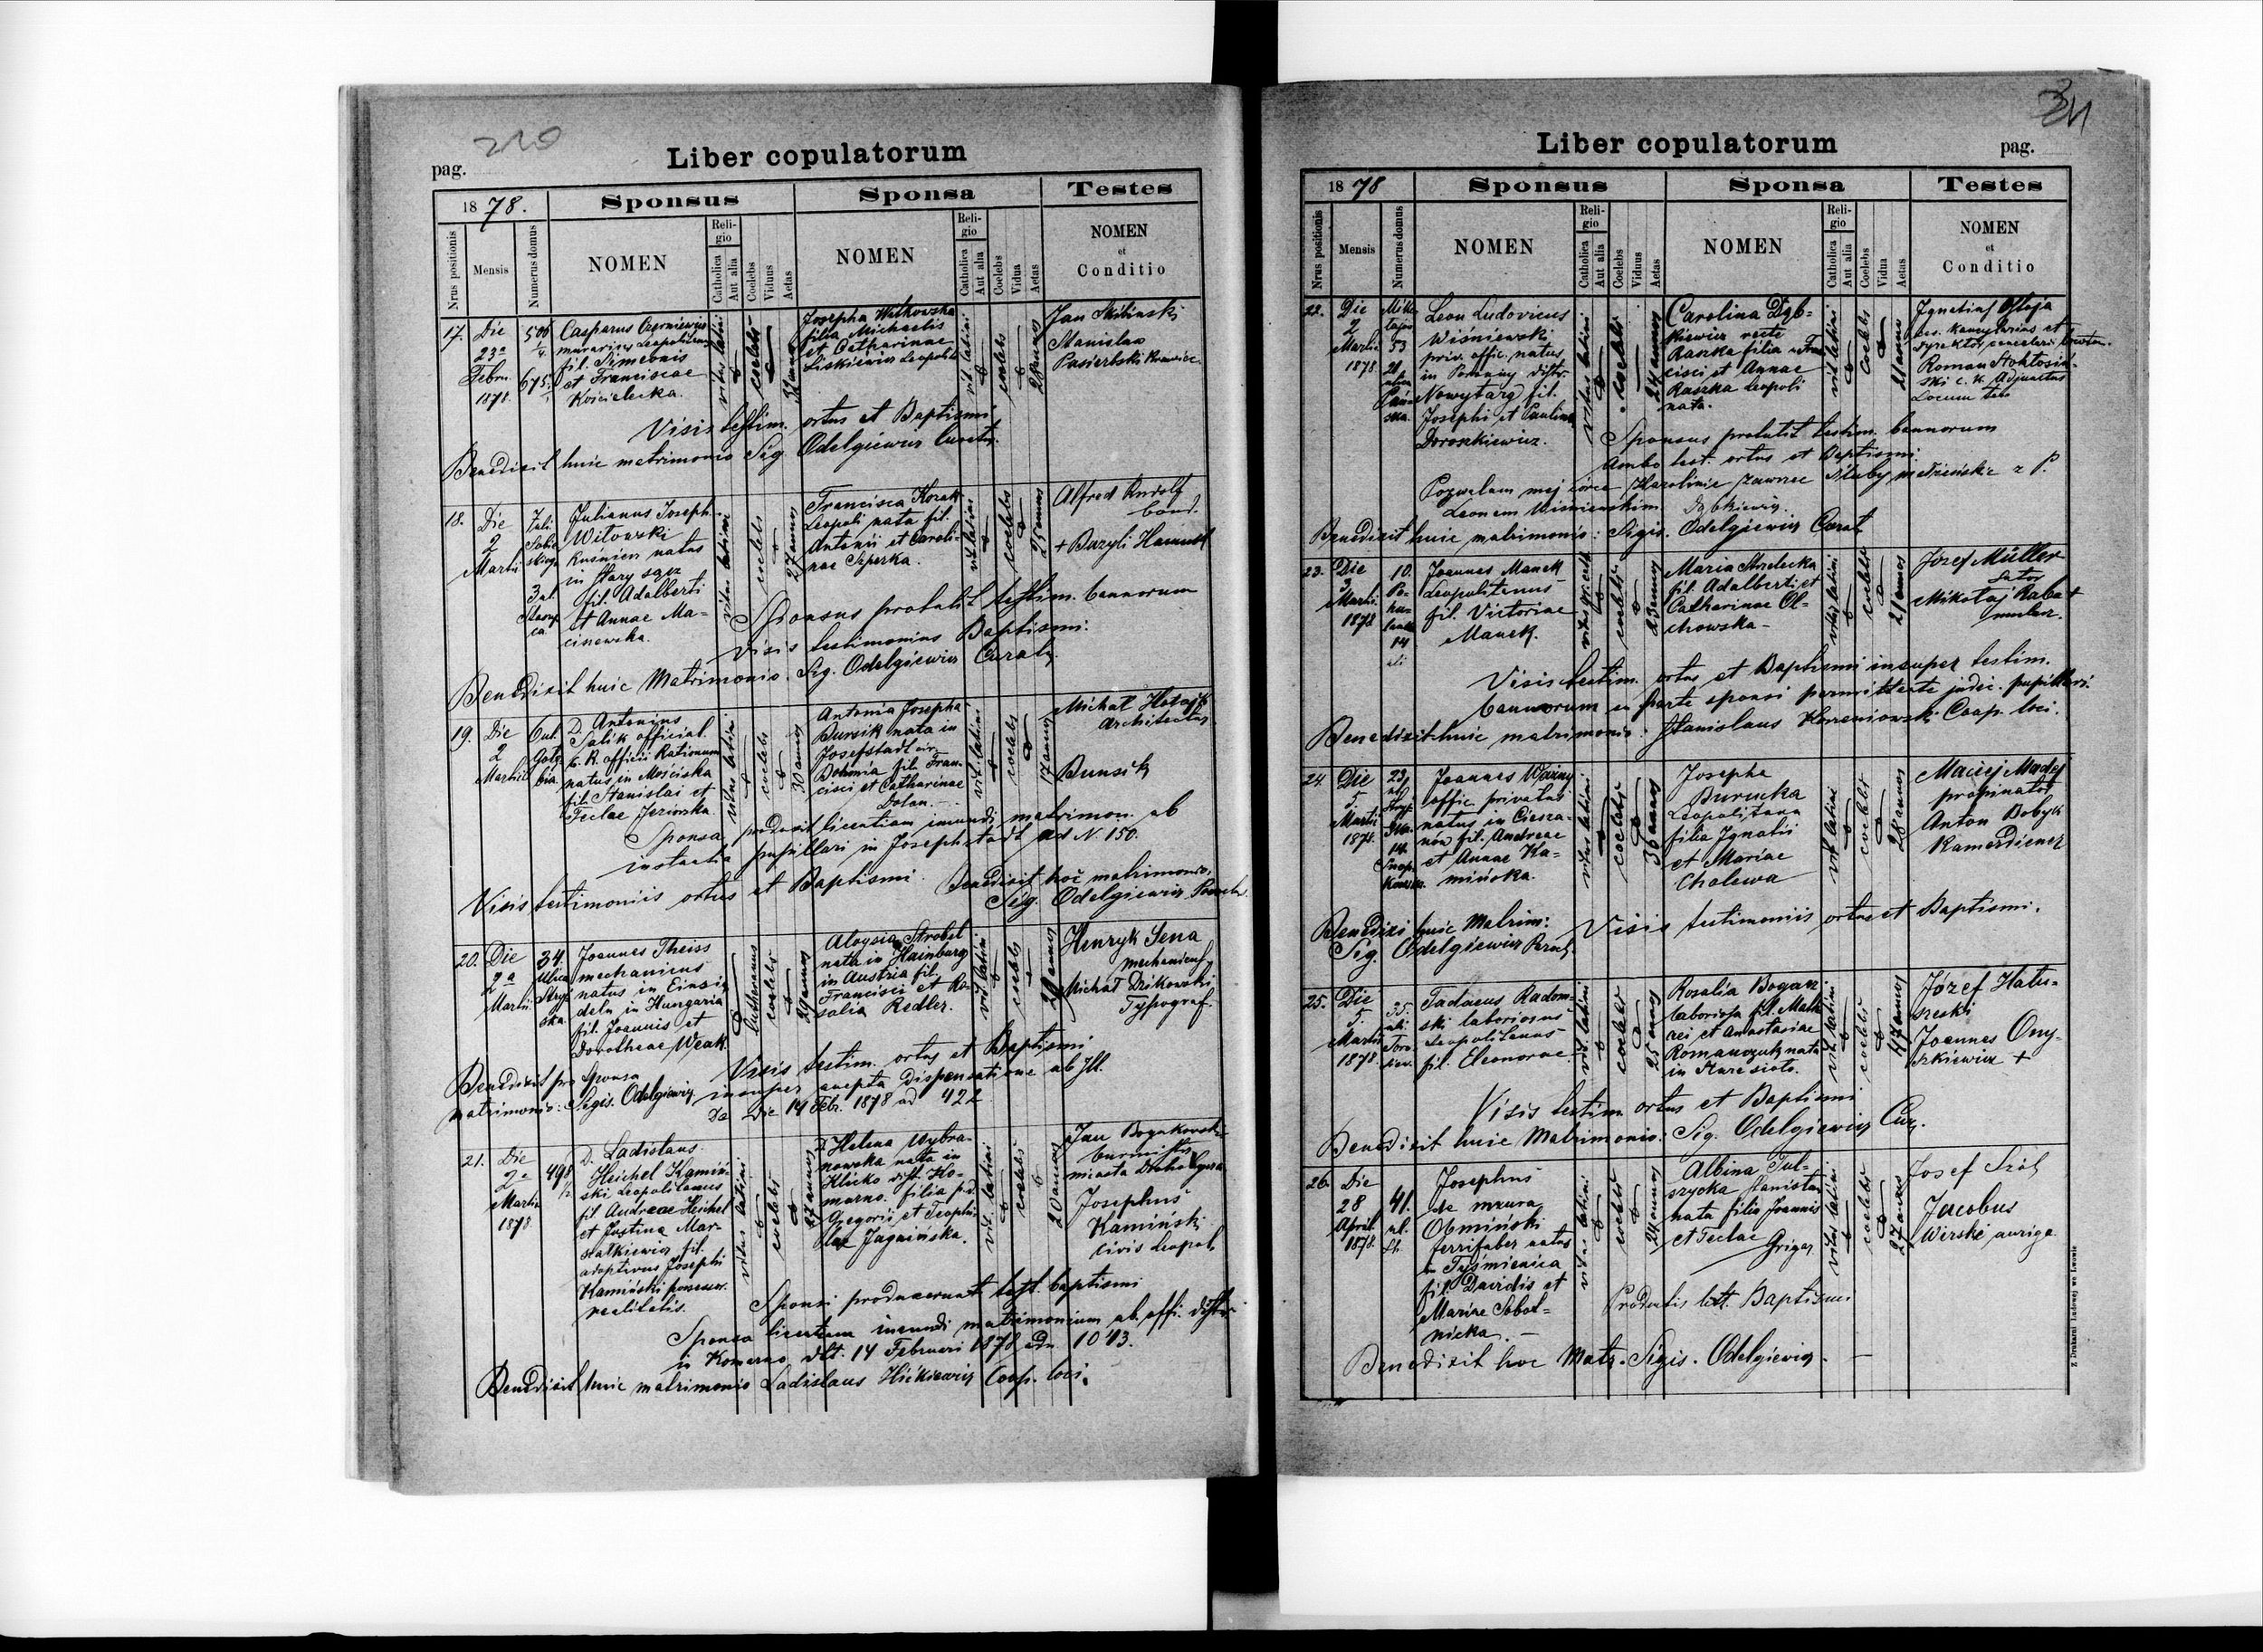 210
pag.
Liber copulatorum
1878.
Sponsus
Sponsa
Testes
Nrus positionis
Mensis
Numerus domus
NOMEN
Religio
Catholica
Aut alia
Coelebs
Viduus
Aetas
NOMEN
Religio
Catholica
Aut alia
Coelebs
Vidua
Aetas
NOMEN
et
Conditio
17.
Die
23a
Febru.
1878.
506
1/4
675.
Casparus Czerniewicz
murarius Leopolitanus
fil. Simeonis
et Franciscae
Kościelecka.
ritus latini
coelebs
Josepha Witkowska
filia Michaelis
et Catharinae
Liskiewicz Leopoli
rit. latini
coelebs
Jan Skibinski
Stanislaw
Pasierbski
Visis testim. ortus et Baptismi
Benedixit huic matrimonio Sig. Odelgiewicz
18.
Die
2
Martii
Julianus Joseph
Witowski
Kuśnierz natus
in Stary Sącz
fil. Adalberti
et Annae Ma-
ciszewska.
ritus latini
coelebs
27 annos
Francisca Kozak
Leopoli nata fil.
Antonii et Caroli-
nae Szperka.
rit latini
coelebs
25 annos
Alfred Rudolf
+ Bazyli
Sponsus protulit testim. bannorum
Visis testimoniis Baptismi.
Benedixit huic Matrimonio. Sig. Odelgiewicz
19.
Die
2
Martii
6 ul.
Gołę-
bia
D. Antonius
Salik official.
C. R. officii Rationum
natus in Mościska
fil. Stanislai et
Teclae Jeziorska.
ritus latini
coelebs
30 annos
Antonia Josepha
Bunsik nata in
Josefstadt
Bohemia fil. Fran-
cisci et Catharinae
Dolan.
rit. latini
coelebs
17 annos
Michał
Architectus
Bunsik
Sponsa produxit licentiam ineundi matrimon. ab
instantia pupillari in Josephstadt ad N. 150.
Visis testimoniis ortus et Baptismi. Benedixit hoc matrimonio.
Sig. Odelgiewicz
20.
Die
2a
Martii
34.
Ulica
Stryj-
ska
Joannes Theiss
mechanicus
natus in Einsie
deln in Hungaria
fil. Joannis et
Dorotheae Weak.
Lutheranus
coelebs
29 annos
Aloysia Strobel
nata in Hainburg
in Austria fil.
Francisci et Ro-
salia Redler.
rit. latini
coelebs
Henryk Sena
mechanicus
Michał Dzikowski
Typograf.
Visis testim. ortus et Baptismi
insuper accepta Dispensatione ab Ill.
die 14 Febr. 1878 ad 422
Benedixit pro Sponsa
matrimonio: Sigis. Odelgiewicz
21.
Die
2a
Martii
1878
498
1/2
D. Ladislaus
Heichel Kamiń-
ski Leopolitanus
fil. Andreae Heichel
et Justina Mar-
szałkiewicz fil.
adoptivus Josephi
Kamiński possessor.
realitatis.
ritus latini
coelebs
27 annos
D. Helena Wybra-
nowska nata in
Klicko distr. Ko-
marno. filia pd.
Gregorii et Teophi-
lae Jagnińska.
rit. latini
coelebs
20 annos
Jan
burmistrz
miasta
Josephus
Kamiński
civis Leopol.
Sponsi produxerunt test. baptismi
Sponsa licentiam ineundi matrimonium ab offi. distr.
in Komarno ddt. 14 Februari 1878 adn 1043.
Benedixit huic matrimonio Ladislaus Hickiewicz Coop. loci.
Liber copulatorum
pag.
1878
Sponsus
Sponsa
Testes
Nrus positionis
Mensis
Numerus domus
NOMEN
Religio
Catholica
Aut alia
Coelebs
Viduus
Aetas
NOMEN
Religio
Catholica
Aut alia
Coelebs
Vidua
Aetas
NOMEN
et
Conditio
22.
Die
2
Martii
1878
Leon Ludovicus
Wiśniewski
priv. offic. natus
in Poronny distr.
Nowytarg fil.
Josephi et Paulina
Doroszkiewicz.
ritus latini
coelebs
24 annos
Carolina Dąb-
kiewicz recte
Raszka filia Fran
cisci et Annae
Raszka Leopoli
nata.
rit latini
coelebs
21 anno
Roman
c. k. Adjunctus
Sponsus protulit testim. bannorum
Ambo test. ortus et Baptismi.
Pozwalam mej córce Karolinie zawrzec śluby małżeńskie z P.
Leonem Wiśniewskim Dąbkiewicz.
Benedixit huic matrimonio: Sigis. Odelgiewicz Curat
23.
Die
3
Martii
1878
10.
14
Joannes Manek
Leopolitanus
fil. Victoriae
Manek.
coelebs
23 annos
Maria Strelecka
fil. Adalberti et
Catharinae Ol-
chowska-
ritus latini
coelebs
21 annos
Józef Müller
Sutor
Mikołaj Raba +
Visis testim. ortus et Baptismi insuper testim.
bannorum ex parte sponsi permittente judic. pupillari.
Benedixit huic matrimonio: Stanislaus Coop. loci.
24.
Die
5.
Martii
1878.
23,
14.
Joannes Ważny
offic. privatus
natus in Ciesza-
nów fil. Andreae
et Annae Ka-
mińska.
ritus latini
coelebs
36 annos
Josepha
Burucka
Leopolitana
filia Ignatii
et Mariae
Cholewa
rit latini
coelebs
28 annos
Maciej Madej
propinator
Anton Bobyk
Kamerdiener
Visis testimoniis ortus et Baptismi.
Benedixi huic Matrim:
Sig. Odelgiewicz Paroch.
25.
Die
5.
Martii
1878.
35.
Tadaeus Radom-
ski laboriosus
Leopolitanus
fil. Eleonorae.
rit. latini
coelebs
25 annos
Rosalia Bogacz
laboriosa fil. Math
aei et Anastasiae
Romanczuk nata
in Stare sioło.
rit latini
coelebs
47 annos
Józef Hału-
szeski
Joannes Ony-
szkiewicz +
Visis testim ortus et Baptismi
Benedixit huic Matrimonio. Sig. Odelgiewicz Cur.
26.
Die
28
April.
1878.
41.
ul.
Josephus
de maura
Obmiński
ferrifaber natus
in Tyśmienica
fil. Davidis et
Mariae Sobol-
nicka.
ritus latini
coelebs
24 annos
Albina Tul-
szycka
nata filia Joannis
et Teclae
Grigar
ritus latini
coelebs
27 annos
Josef Szół
Jacobus
Wirski auriga
Productis litt. Baptismi
Benedixit hoc Matr. Sigis. Odelgiewicz.
Z Drukarni Ludowej we Lwowie